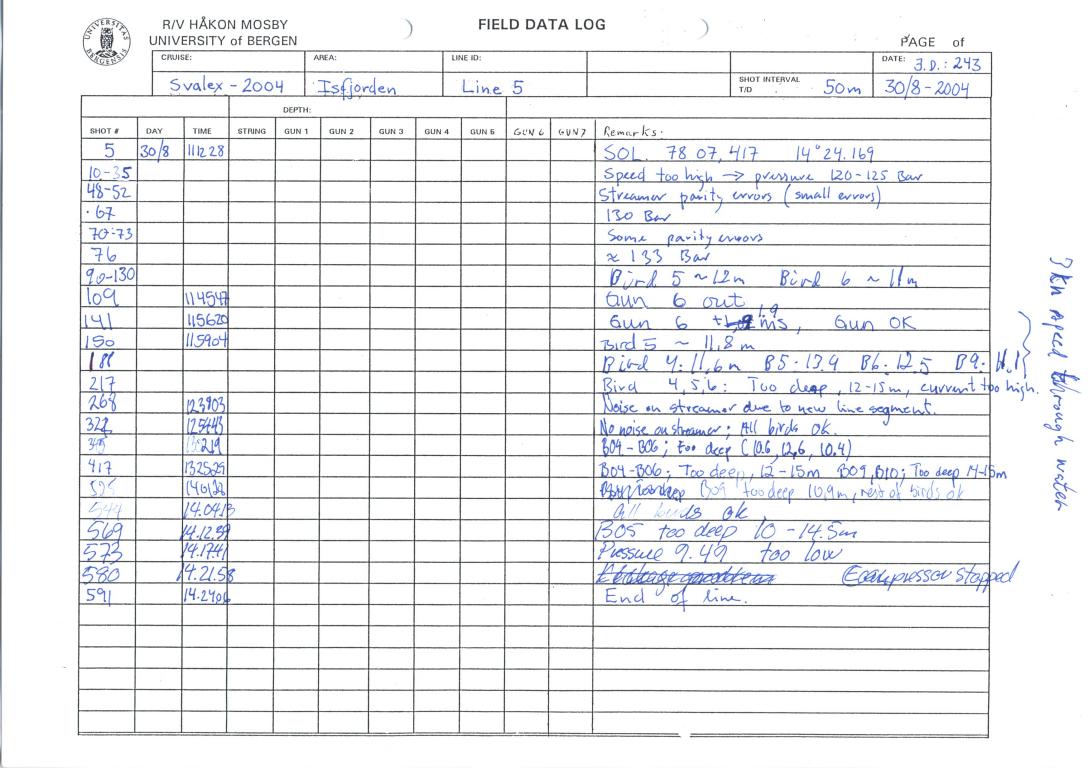 R/V HÅKON MOSBY
UNIVERSITY of BERGEN
UNIVERSITAS BERGENSIS
FIELD DATA LOG
PAGE of
CRUISE: AREA: LINE ID: DATE: J.D.: 243
Svalex - 2004 Isfjorden Line 5 SHOT INTERVAL T/D 50m 30/8-2004
DEPTH:
SHOT # DAY TIME STRING GUN 1 GUN 2 GUN 3 GUN 4 GUN 5 GUN 6 GUN 7 Remarks:
5 30/8 111228 SOL. 78 07,417 14°24.169
10-35 Speed too high → pressure 120-125 Bar
48-52 Streamer parity errors (small errors)
67 130 Bar
70-73 Some parity errors
76 ≈ 133 Bar
90-130 Bird 5 ~12m Bird 6 ~ 11m
109 114547 Gun 6 out
141 115620 Gun 6 1,9 ms, Gun OK
150 115904 Bird 5 ~ 11,8 m
188 Bird 4: 11,6m B5-13.9 B6: 12.5 B9: 11.1
217 Bird 4,5,6: Too deep, 12-15m, current too high.
268 123903 Noise on streamer due to new line segment.
322 125443 No noise on streamer; All birds OK.
345 B04-B06; too deep (10.6, 12,6, 10.4)
417 132529 B04-B06; Too deep, 12-15m B09, B10; Too deep 14-15m
B09 too deep 10,9m, rest of birds ok
544 14.04.13 All birds ok
569 14.12.39 B05 too deep 10-14.5m
573 14.17.41 Pressure 9.49 too low
580 14.21.58 Compressor stopped
591 14.2406 End of line.
3 kn speed through water